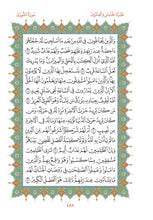 الجزء الخامس والعشرون
سورة الشورى
وَالَّذِينَ يُحَاجُّونَ فِي اللَّهِ مِن بَعْدِ مَا اسْتُجِيبَ لَهُ حُجَّتُهُمْ
دَاحِضَةٌ عِندَ رَبِّهِمْ وَعَلَيْهِمْ غَضَبٌ وَلَهُمْ عَذَابٌ شَدِيدٌ ١٦
اللَّهُ الَّذِي أَنزَلَ الْكِتَابَ بِالْحَقِّ وَالْمِيزَانَ وَمَا يُدْرِيكَ
لَعَلَّ السَّاعَةَ قَرِيبٌ ١٧ يَسْتَعْجِلُ بِهَا الَّذِينَ لَا يُؤْمِنُونَ
بِهَا وَالَّذِينَ آمَنُوا مُشْفِقُونَ مِنْهَا وَيَعْلَمُونَ أَنَّهَا الْحَقُّ
أَلَا إِنَّ الَّذِينَ يُمَارُونَ فِي السَّاعَةِ لَفِي ضَلَالٍ بَعِيدٍ ١٨
اللَّهُ لَطِيفٌ بِعِبَادِهِ يَرْزُقُ مَن يَشَاءُ وَهُوَ الْقَوِيُّ الْعَزِيزُ ١٩
مَن كَانَ يُرِيدُ حَرْثَ الْآخِرَةِ نَزِدْ لَهُ فِي حَرْثِهِ وَمَن
كَانَ يُرِيدُ حَرْثَ الدُّنْيَا نُؤْتِهِ مِنْهَا وَمَا لَهُ فِي الْآخِرَةِ
مِن نَّصِيبٍ ٢٠ أَمْ لَهُمْ شُرَكَاءُ شَرَعُوا لَهُم مِّنَ الدِّينِ
مَا لَمْ يَأْذَن بِهِ اللَّهُ وَلَوْلَا كَلِمَةُ الْفَصْلِ لَقُضِيَ بَيْنَهُمْ
وَإِنَّ الظَّالِمِينَ لَهُمْ عَذَابٌ أَلِيمٌ ٢١ تَرَى الظَّالِمِينَ
مُشْفِقِينَ مِمَّا كَسَبُوا وَهُوَ وَاقِعٌ بِهِمْ وَالَّذِينَ
آمَنُوا وَعَمِلُوا الصَّالِحَاتِ فِي رَوْضَاتِ الْجَنَّاتِ لَهُم
مَّا يَشَاءُونَ عِندَ رَبِّهِمْ ذَٰلِكَ هُوَ الْفَضْلُ الْكَبِيرُ ٢٢
٤٨٥